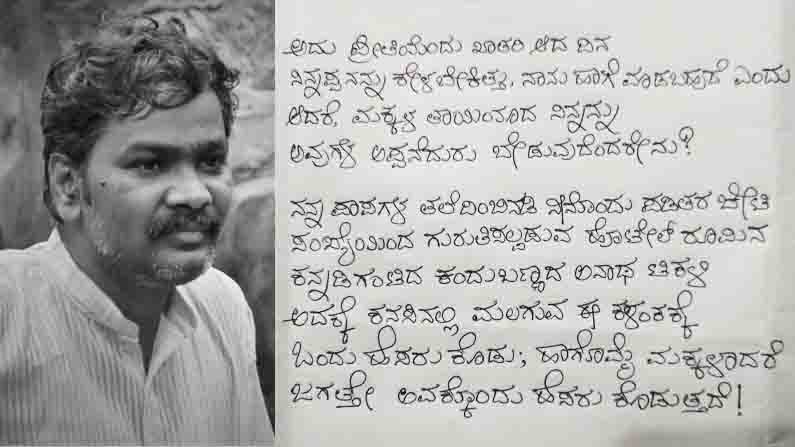 ಅದು ಪ್ರೀತಿಯೆಂದು ಖಾತರಿ ಆದ ದಿನ
ನಿನ್ನಪ್ಪನನ್ನು ಕೇಳಬೇಕಿತ್ತು, ನಾನು ಹಾಗೆ ಮಾಡಬಹುದೆ ಎಂದು
ಆದರೆ, ಮಕ್ಕಳ ತಾಯಿಯಾದ ನಿನ್ನನ್ನು
ಅವುಗಳ ಅಪ್ಪನೆದುರು ಬೇಡುವುದೆಂದರೇನು?
ನನ್ನ ಪಾಪಗಳ ತಲೆದಿಂಬಿನಡಿ ನೀನೊಂದು ಪಾತರ ಚೀಟಿ
ಸಂಖ್ಯೆಯಿಂದ ಗುರುತಿಸಲ್ಪಡುವ ಹೊಟೇಲ್ ರೂಮಿನ
ಕನ್ನಡಿಗಂಟಿದ ಕಂದುಬಣ್ಣದ ಅನಾಥ ಟಿಕಳಿ
ಅದಕ್ಕೆ ಕನಸಿನಲ್ಲಿ ಮಲಗುವ ಈ ಕಳಂಕಕ್ಕೆ
ಒಂದು ಹೆಸರು ಕೊಡು; ಹಾಗೊಮ್ಮೆ ಮಕ್ಕಳಾದರೆ
ಜಗತ್ತೇ ಅವಕ್ಕೊಂದು ಹೆಸರು ಕೊಡುತ್ತದೆ!